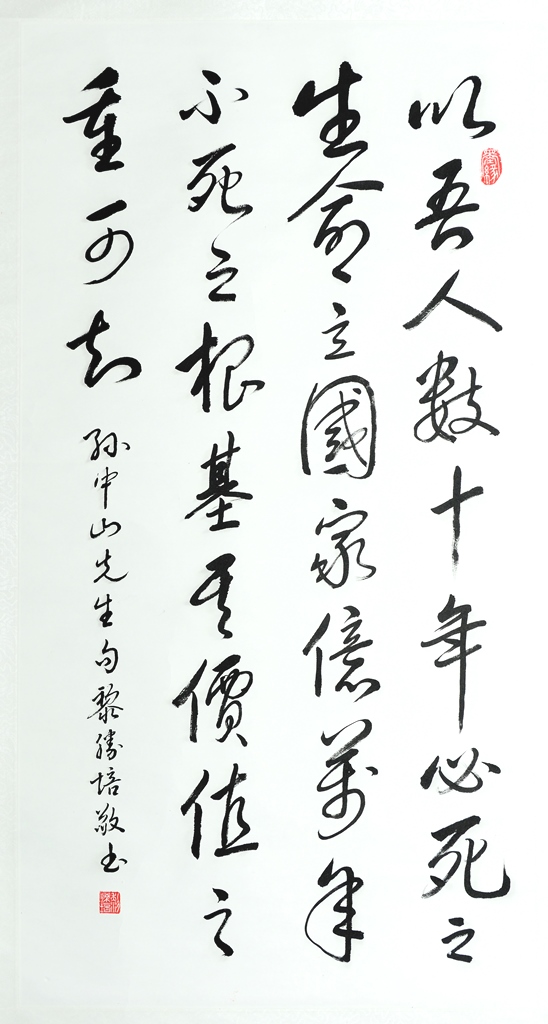 以吾人數十年必死之
生命立國家億萬年
不死之根基其價值之
重可知
孫中山先生句黎勝培敬书